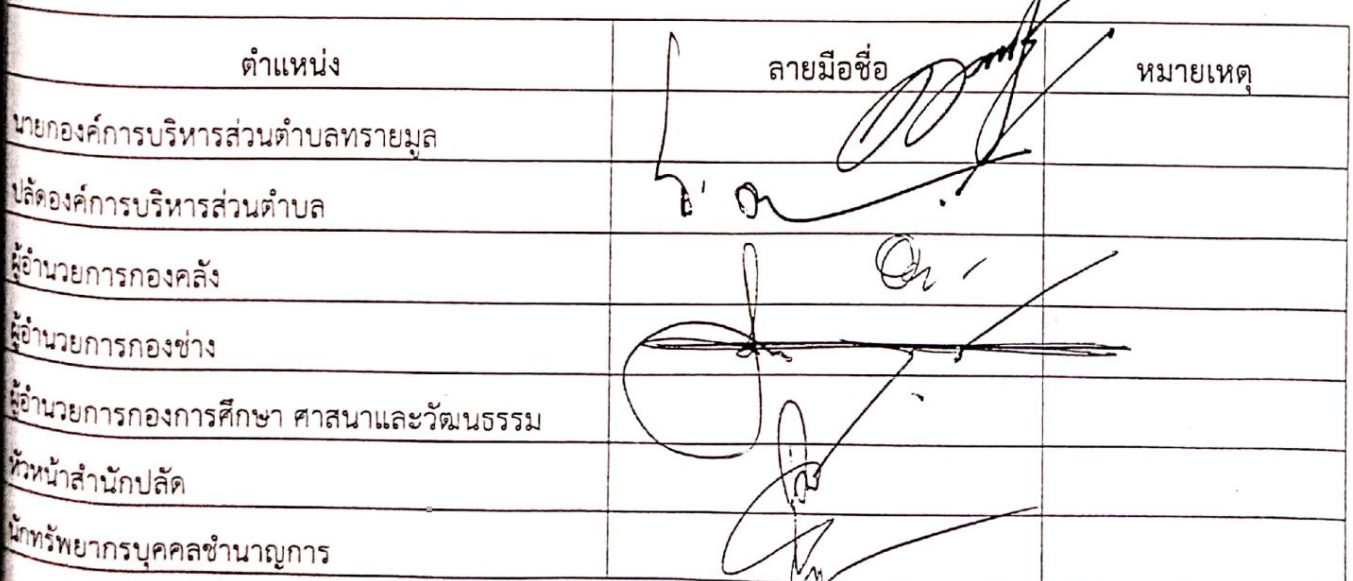 ตำแหน่ง ลายมือชื่อ หมายเหตุ
นายกองค์การบริหารส่วนตำบลทรายมูล
ปลัดองค์การบริหารส่วนตำบล
ผู้อำนวยการกองคลัง
ผู้อำนวยการกองช่าง
ผู้อำนวยการกองการศึกษา ศาสนาและวัฒนธรรม
หัวหน้าสำนักปลัด
นักทรัพยากรบุคคลชำนาญการ